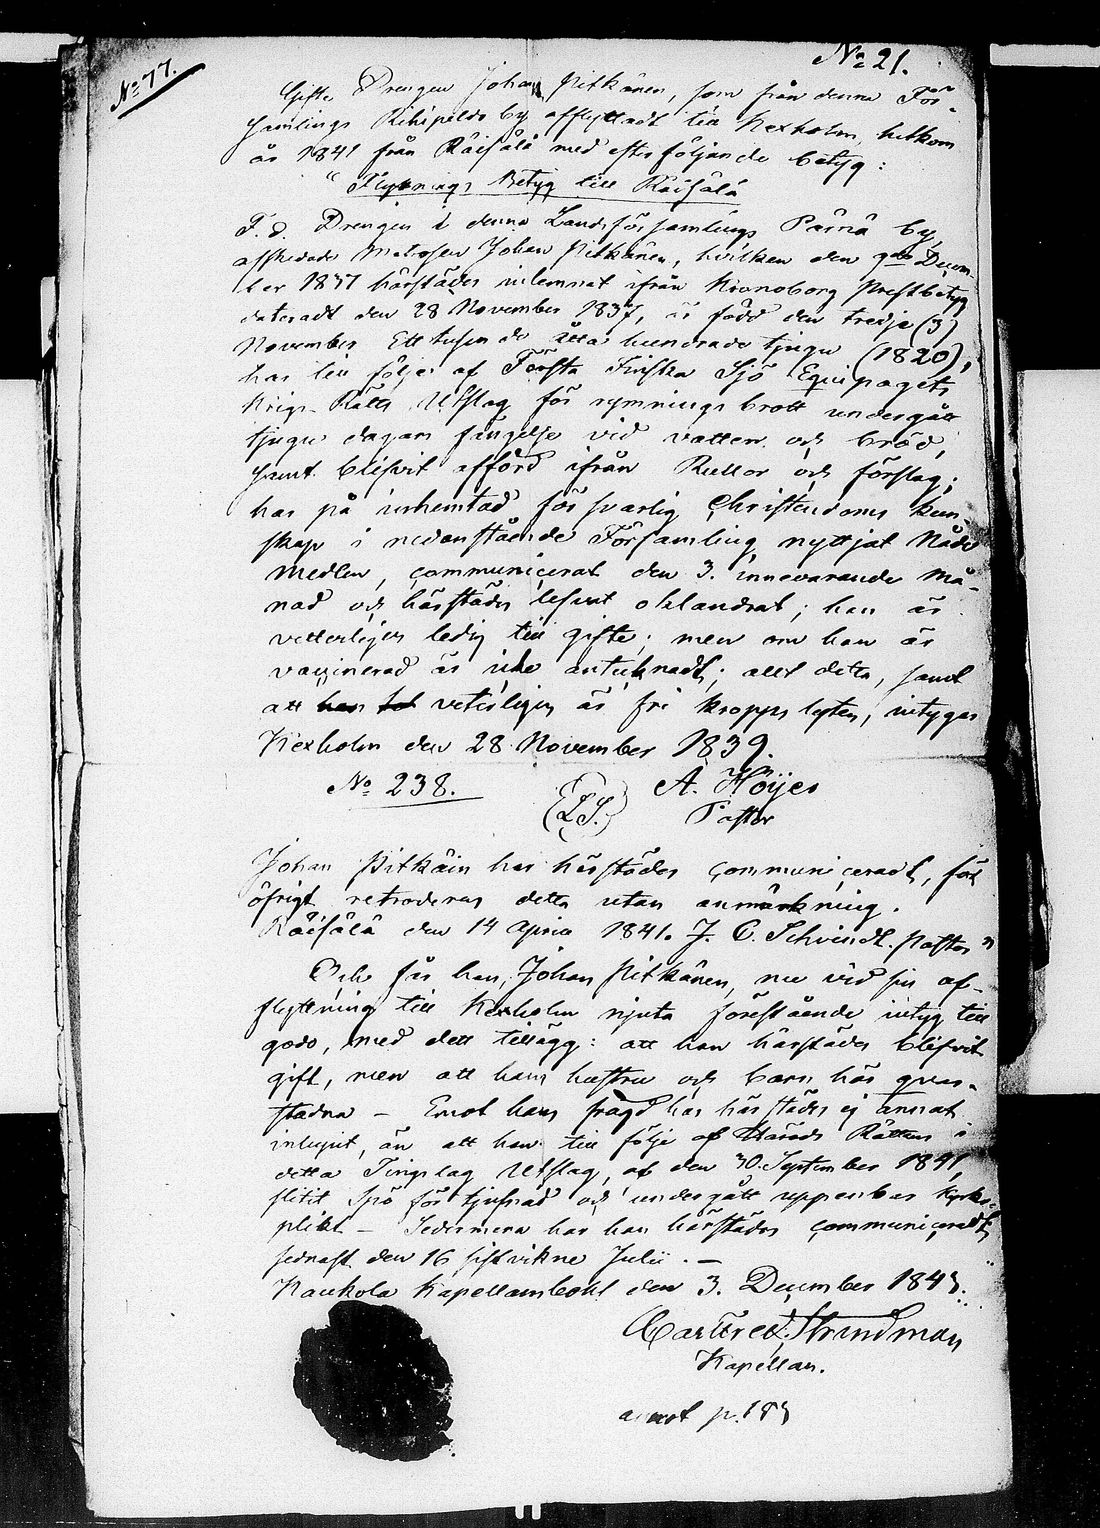 No 77.
No 21.
Gifte Drengen Johan Pitkänen, som från denna För-
samlings Riihipeldo by afflyttadt till Kexholm, hitkom
år 1841 från Räisälä med efterföljande betyg:
"Flyttnings Betyg till Räisälä
F. d. Drengen i denna Landsförsamlings Pärnä by,
afskedade Matrosen Johan Pitkänen, hvilken den 9de Decem-
ber 1837 härstädes inlemnat ifrån Kronoborg Prestbetyg
dateradt den 28 November 1837, är född den tredje (3)
November Ett tusende åtta hundrade tjugu (1820),
har till följe af Första Finska Sjö Equipagets
Krigs-Rätts Utslag för rymningsbrott undergått
tjugu dagars fängelse vid vatten och bröd,
samt blifvit afförd ifrån Rullor och förslag;
har på inhemtad försvarlig Christendoms kun-
skap i nedanstående Församling nyttjat Nåde
medlen, communicerat den 3. innevarande må-
nad och härstädes lefvat oklandrat; han är
vetterligen ledig till gifte; men om han är
vaccinerad är icke antecknadt; allt detta, samt
att veterligen är fri kropps lyten, intygar
Kexholm den 28 November 1839.
No 238.
(L.S.)
A. Höijer
Pastor
Johan Pitkäin har härstädes communiceradt, för
öfrigt retroderas detta utan anmärkning.
Räisälä den 14 Aprill 1841. J. C. Schvindt. Pastor"
Och får han, Johan Pitkänen, nu vid sin af-
flyttning till Kexholm njuta förestående intyg till
godo, med dett tillägg: att han härstädes blifvit
gift, men att hans hustru och barn här qvar-
stadna – Emot hans frägd har härstädes ej annat
inlupit, än att han till följe af Härads Rättens i
detta Tingslag Utslag, af den 30. September 1841,
slitit Spö för tjufnad och undergått uppenbar kyrko-
plikt – Sedermera har han härstädes communiceradt
sednast den 16 sistvikne Julii. –
Kaukola Kapellansbohl den 3. December 1843.
Carl Fred. Strandman
Kapellan.
annot p. 183